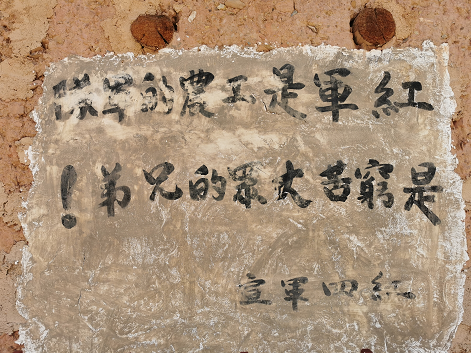 紅軍是工農的軍隊
是窮苦大眾的兄弟！
紅四軍宣